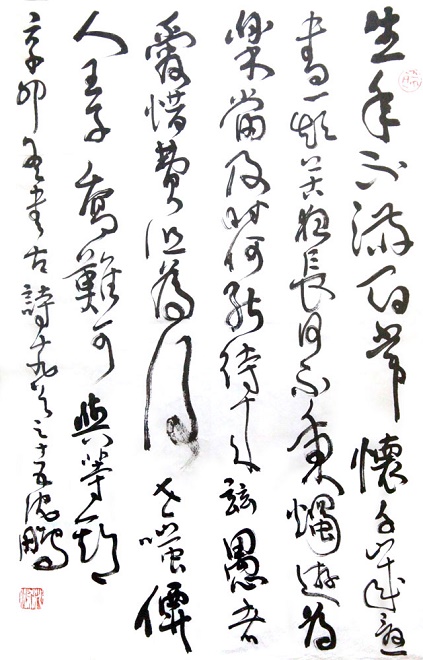 生年不滿百常懷千歲憂
晝短苦夜長何不秉燭遊為
樂當及時何能待来兹愚者
愛惜費但為後世嗤僊
人王子喬難可與等期
辛卯書古詩十九首之十五鵬